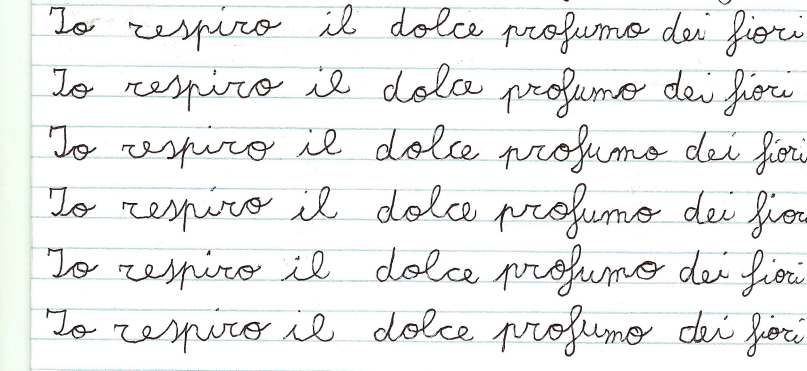 Io respiro il dolce profumo dei fiori
Io respiro il dolce profumo dei fiori
Io respiro il dolce profumo dei fiori
Io respiro il dolce profumo dei fior
Io respiro il dolce profumo dei fiori
Io respiro il dolce profumo dei fiori